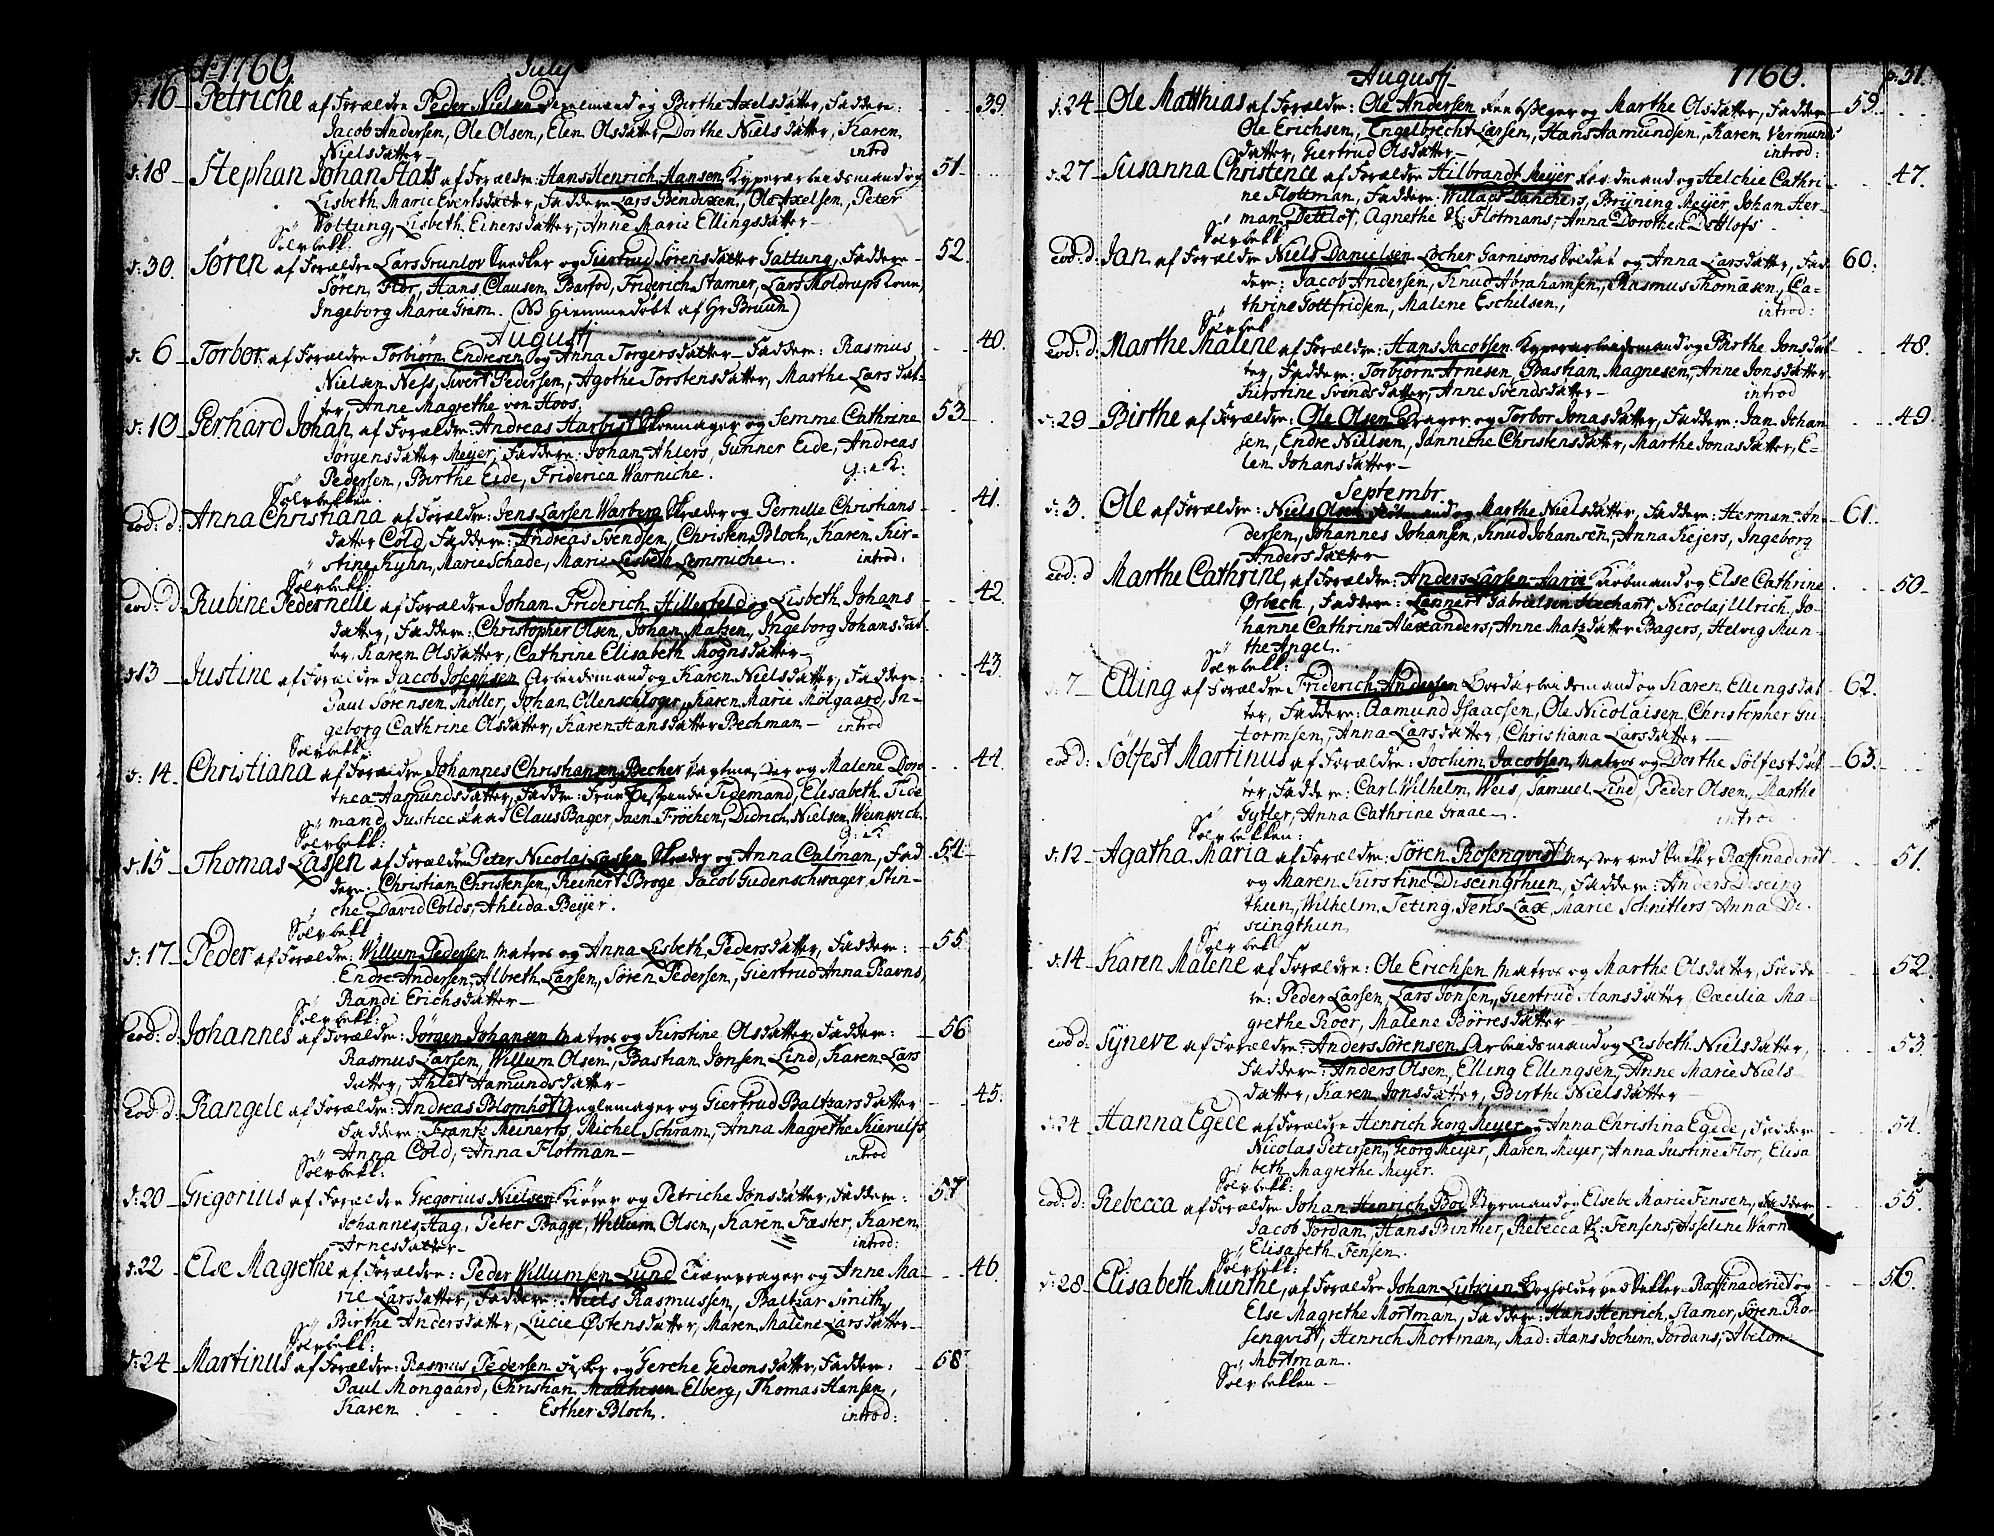 Aº 1760. July
d: 16 Petriche af Forældre Peder Nielsen og Birthe Axelsdatter, Faddere: 39.
Jacob Andersen, Ole Olsen, Elen Olsdatter, Dorthe Nielsdatter, Karen
Nielsdatter introd
d: 18 Stephan Johan Stats af Forældre: Hans Henrich Hansen Kyperarbeidsmand og 51
Lisbeth Marie Evertsdatter, Faddere Lars Bendixen, Ole Axelsen, Peter
Wöttung, Lisbeth Einersdatter, Anne Marie Ellingsdatter
Sölvbekk:
d: 30. Søren af Forældre Lars Grunlov Snedker og Giertrud Sørensdatter Gattung, Faddere 52.
Søren Flor, Hans Clausen Barfod, Friderich Stamer, Lars Moldrups Kone,
Ingeborg Marie Griem. (NB Hiemmedöbt af Hr Bruun)
Augustj
d: 6 Torbor af Forældre Torbiørn Endresen og Anna Torgersdatter Faddere: Rasmus 40.
Nielsen Ness, Sivert Pedersen, Agothe Torstensdatter, Marthe Larsdat-
ter, Anne Magrethe von Hoos.
d: 10 Gerhard Johan af Forældre: Andreas Harbist Skoemager og Semme Cathrine 53
Jørgensdatter Meyer, Faddere: Johan Ahlers, Gunner Eide, Andreas
Pedersen, Birthe Eide, Friderica Warniche. G: a K:
Sölvbekken.
eod: d: Anna Christiana af Forældre: Jens Larsen Warberg Skræder og Pernelle Christians- 41.
datter Cold, Faddere: Andreas Svendsen, Christen Bloch, Karen Kir-
stine Kyhn, Marie Schade, Marie Lisbeth Lemmiche. introd:
Sölvbekk:
eod: d Rubine Pedernelle af Forældre Johan Friderich Hillerfeld og Lisbeth Johans 42
datter, Faddere: Christopher Olsen, Johan Matsen, Ingeborg Johansdat
ter, Karen Olsdatter, Cathrine Elisabeth Mognsdatter
d: 13 Justine af Forældre Jacob Josephsen Arbeidsmand og Karen Nielsdatter, Faddere: 43
Paul Sørensen Møller, Johan Ollenschloger, Karen Marie Mölgaard, In-
geborg Cathrine Olsdatter, Karen Hansdatter Bechman introd
Sölvbekk:
d: 14. Christiana af Forældre Johannes Christiansen Becher Vagtmester og Malene Doro 44.
thea Aamundsdatter, Faddere: Frue Tidemand, Elisabeth Tide
mand, Justice Claus Bager, Joen Frochen, Didrich Nielsen Weinwich.
Sölvbekk: G: K
d: 15 Thomas Lassen af Forældre Peter Nicolaj Lassen Skræder og Anna Calman, Fad 54
dere. Christian Christensen, Reinert Broge, Jacob Gudenschwager, Stin-
che David Colds, Ahlida Beyer.
Sölvbekk
d: 17 Peder af Forældre: Willum Pedersen Matros og Anna Lisbeth Pedersdatter, Faddere: 55
Endre Andersen, Albreth Larsen, Søren Pedersen, Giertrud Anna Ravns,
Randi Erichsdatter
Sölvbekk:
eod: d: Johannes af Forældre: Jørgen Johansen Matros og Kirstine Olsdatter, Faddere: 56
Rasmus Larsen, Willum Olsen, Bastian Jonsen Lind, Karen Lars
datter, Ahlet Aamundsdatter
Eod d: Rangele af Forældre: Andreas Blomhof Neglemager og Giertrud Baltzarsdatter 45.
Faddere: Frantz Meinerts, Michel Schram, Anna Magrethe Kierulfs
Anna Cold, Anna Flotman introd
Sölvbekk:
d: 20 Gregorius af Forældre Gregorius Nielsen Kiører og Petriche Jonsdatter, Faddere: 57
Johannes Hag, Peter Bagge, Willum Olsen, Karen Fæster, Karen
Arnesdatter introd:
d: 22 Else Magrethe af Forældre: Peder Willumsen Lund Tiærevrager og Anne Ma- 46.
rie Larsdatter, Faddere: Niels Rasmussen, Baltzar Smith,
Birthe Andersdatter, Lucie Østensdatter, Maren Malene Larsdatter
Sölvbekk:
d: 24 Martinus af Forældre: Rasmus Pedersen Fisker og Gerche Gedionsdatter, Faddere: 58
Paul Mongaard, Christian Mathisen Elberg, Thomas Hansen,
Karen Esther Bloch. introd:
Augustj 1760. p: 31.
d: 24 Ole Matthias af Forældre: Ole Andersen og Marthe Olsdatter, Faddere 59.
Ole Erichsen, Engelbrecht Larsen, Hans Aamundsen, Karen Vermunds
datter, Giertrud Olsdatter introd:
d: 27 Susanna Christence af Forældre Hilbrandt Meyer Kiøbmand og Helchie Cathri 47.
ne Flottman, Faddere: Willads Danchers, Bryning Meyer, Johan Her-
man Dettlof, Agnethe Flotmans, Anna Dorothea Dettlofs
Sölvbekk
eod: d: Jan af Forældre Niels Danielsen Locher Garnisons Soldat og Anna Larsdatter, Fad 60.
dere: Jacob Andersen, Knud Abrahamsen, Rasmus Thomæsen, Ca-
thrine Gottfridsen, Malene Eschelsen, introd:
Sölvbek
eod: d: Marthe Malene af Forældre: Hans Jacobsen Kyperarbeidsmand og Birthe Jonsdat 48.
ter, Faddere: Torbiorn Arnesen, Bastian Magnesen, Anne Jonsdatter
Kirstine Svendsdatter, Anne Svendsdatter introd
d: 29 Birthe af Forældre: Ole Olsen Drager og Torbor Jonasdatter, Faddere: Jan Johan 49.
sen, Endre Nielsen, Janniche Christensdatter, Marthe Jonasdatter, E-
len Johansdatter
Septembr.
d: 3. Ole af Forældre: Niels Olsen og Marthe Nielsdatter, Faddere: Herman An- 61.
dersen, Johannes Johansen, Knud Johansen, Anna Kejers, Ingeborg
Andersdatter
eod: d Marthe Cathrine, af Forældre: Anders Larsen Aarøe Kiöbmand og Else Cathrine 50
Ørbech, Faddere: Lennert Gabrielsen Stechant, Nicolaj Ulrich, Jo-
hanne Cathrine Alexanders, Anne Matzdatter Bagers, Helvig Mun-
the Angel.
Sölvbekk:
d: 7 Elling af Forældre: Friderich Andersen Bordarbeidsmand og Karen Ellingsdat 62.
ter, Faddere: Aamund Isaacsen, Ole Nicolaisen, Christopher Gu-
tormsen, Anna Larsdatter, Christiana Larsdatter
eod d: Sölfest Martinus af Forældre: Jochim Jacobsen Matros og Dorthe Sölfestdat 63.
ter, Faddere: Carl Wilhelm Weis, Samuel Lind, Peder Olsen, Marthe
Gytler, Anna Cathrine Graae. introd
Sölvbekken:
d: 12 Agatha Maria af Forældre: Søren Rosenqvist Mester ved Sukker Raffinaderiet 51.
og Maren Kirstine Discingthun, Faddere: Anders Discing
thun, Wilhelm Teting, Jens Lax, Marie Schnitlers, Anna Di-
scingthun
Sölvbek
d: 14 Karen Malene af Forældre: Ole Erichsen Matros og Marthe Olsdatter, Fadde 52
re: Peder Larsen, Lars Jonsen, Giertrud Hansdatter, Cæcilia Ma-
grethe Roer, Malene Börresdatter
eod d: Syneve af Forældre: Anders Sörensen Arbeidsmand og Lisbeth Nielsdatter, 53
Faddere: Anders Olsen, Elling Ellingsen, Anne Marie Niels-
datter, Karen Jonsdatter, Birthe Nielsdatter
d: 24 Hanna Egede af Forældre Henrich Georg Meyer og Anna Christina Egede, Faddere 54.
Nicolas Petersen, Georg Meyer, Maren Meyer, Anna Justine Flor, Elisa
beth Magrethe Meyer.
Sölvbekk:
eod: d: Rebecca af Forældre Johan Henrich Bod Styrmand og Elsebe Marie Fensen, Faddere 55.
Jacob Jordan, Hans Binther, Rebecca Fensens, Asselene Warn
Elisabeth Fensen.
Sölvbekk:
d: 28 Elisabeth Munthe, af Forældre Johan Lutzien Bogholder ved Sukker Raffinaderiet og 56.
Else Magrethe Mortman, Faddere: Hans Henrich Stamer, Søren Ro-
senqvist, Henrich Mortman, Mad: Hans Jochim Jordans, Abelon
Mortman.
Sölvbekken